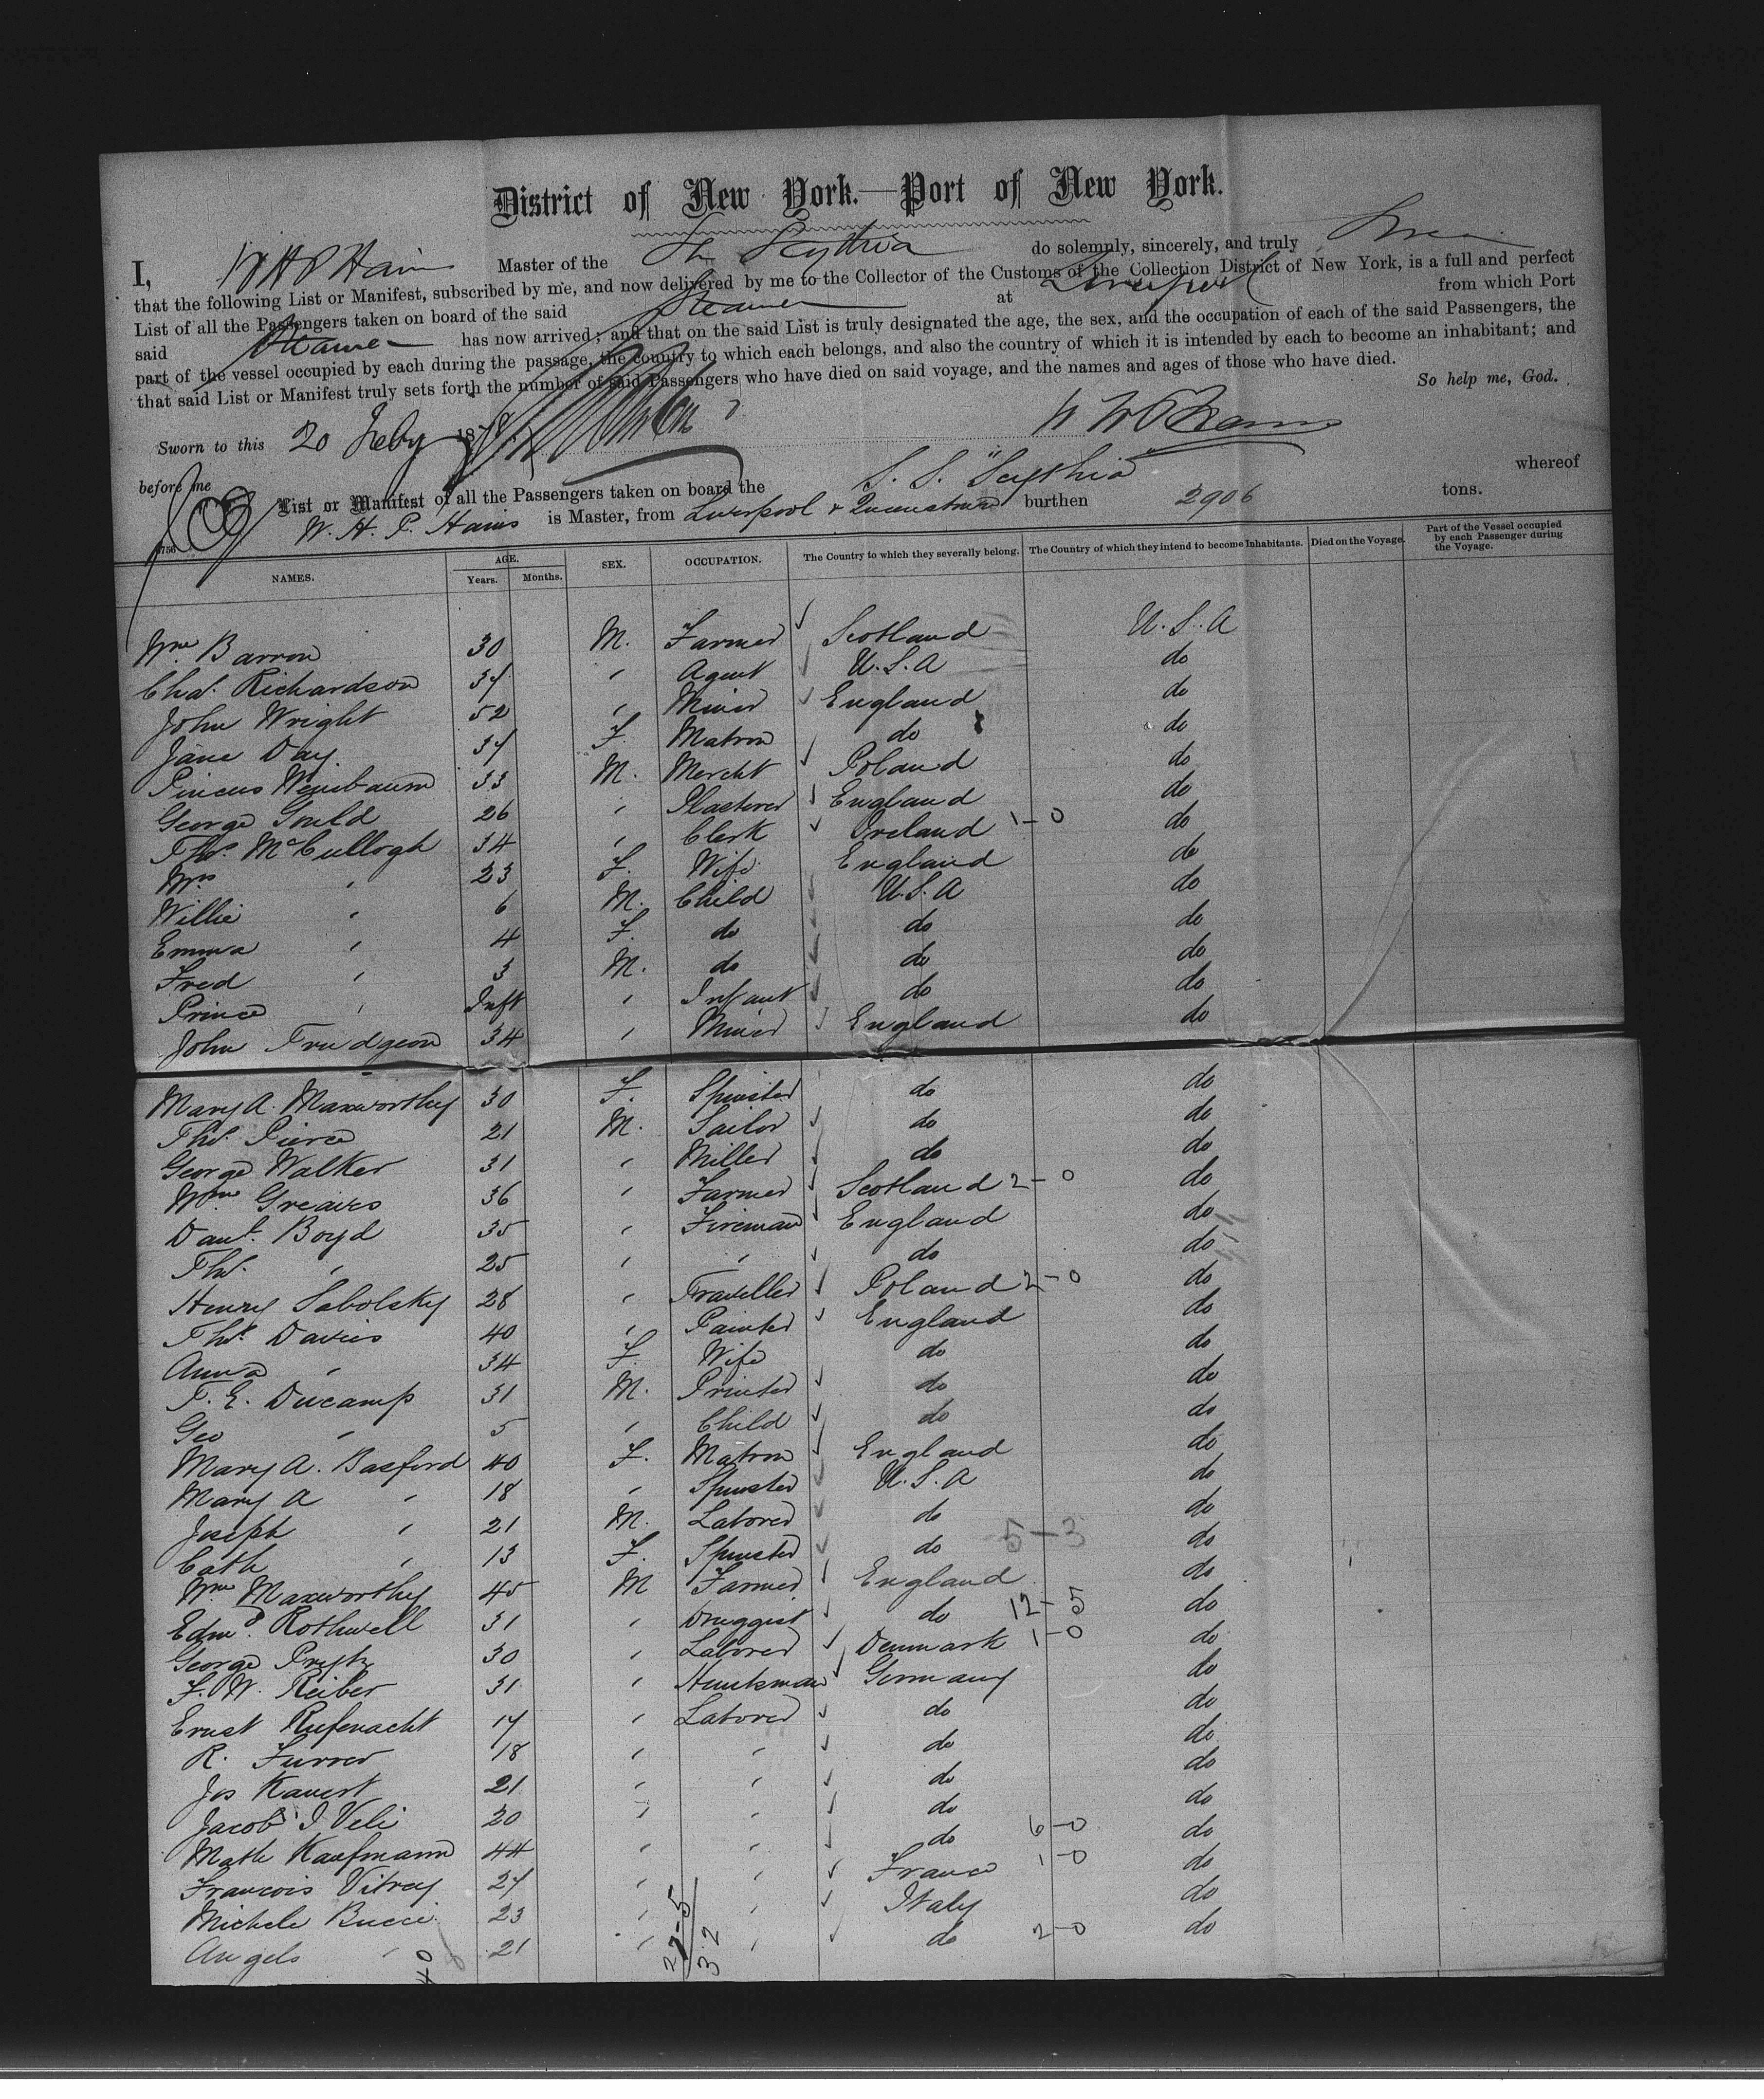 District of New York.—Port of New York.
I, W H P Hains Master of the Str Scythia do solemnly, sincerely, and truly Swear
that the following List or Manifest, subscribed by me, and now delivered by me to the Collector of the Customs of the Collection District of New York, is a full and perfect
List of all the Passengers taken on board of the said Steamer at Liverpool from which Port
said Steamer has now arrived; and that on the said List is truly designated the age, the sex, and the occupation of each of the said Passengers, the
part of the vessel occupied by each during the passage, the country to which each belongs, and also the country of which it is intended by each to become an inhabitant; and
that said List or Manifest truly sets forth the number of said Passengers who have died on said voyage, and the names and ages of those who have died.
So help me, God.
Sworn to this 20 Feby 1878
W H P Hains
before me
List or Manifest of all the Passengers taken on board the S. S. "Scythia" whereof
W. H. P. Hains is Master, from Liverpool & Queenstown burthen 2906 tons.
NAMES. AGE. Years. Months. SEX. OCCUPATION. The Country to which they severally belong. The Country of which they intend to become Inhabitants. Died on the Voyage. Part of the Vessel occupied by each Passenger during the Voyage.
Wm Barron 30 M. Farmer Scotland U.S.A
Chas. Richardson 37 " Agent U.S.A do
John Wright 52 " Miner England do
Jane Day 37 F. Matron do do
Pincus Weisbaum 33 M. Mercht Poland do
George Gould 26 " Plasterer England do
Thos. McCullogh 34 " Clerk Ireland 1-0 do
Mrs " 23 F. Wife England do
Willie " 6 M. Child U.S.A do
Emma " 4 F. do do do
Fred " 3 M. do do do
Prince " Inft " Infant do do
John Trudgeon 34 " Miner England do
Mary A. Maxworthy 30 F. Spinster do do
Thos. Pierce 21 M. Sailor do do
George Walker 31 " Miller do do
Wm Greaves 36 " Farmer Scotland 2-0 do
Danl. Boyd 35 " Fireman England do
Thos. " 25 " " do do
Henry Sobolsky 28 " Traveller Poland 2-0 do
Thos. Davies 40 " Painter England do
Anna " 34 F. Wife do do
F. E. Ducamp 31 M. Printer do do
Geo " 5 " Child do do
Mary A. Basford 40 F. Matron England do
Mary A " 18 " Spinster U.S.A do
Joseph " 21 M. Laborer do do
Cath " 13 F. Spinster do 5-3 do
Wm Maxworthy 45 M Farmer England do
Edmd. Rothwell 31 " Druggist do 12-5 do
George 30 " Laborer Denmark 1-0 do
F. W. Reiber 31 " Huntsman Germany do
Ernest Rufenacht 17 " Laborer do do
R. Furrer 18 " " do do
Jos Kauert 21 " " do do
Jacob I Veli 20 " " do do
Math Kaufmann 44 " " do 6-0 do
Francois Vitrey 27 " " France 1-0 do
Michele Bucci 23 " " Italy do
Angelo " 21 " " do 2-0 do
40
27-5
32